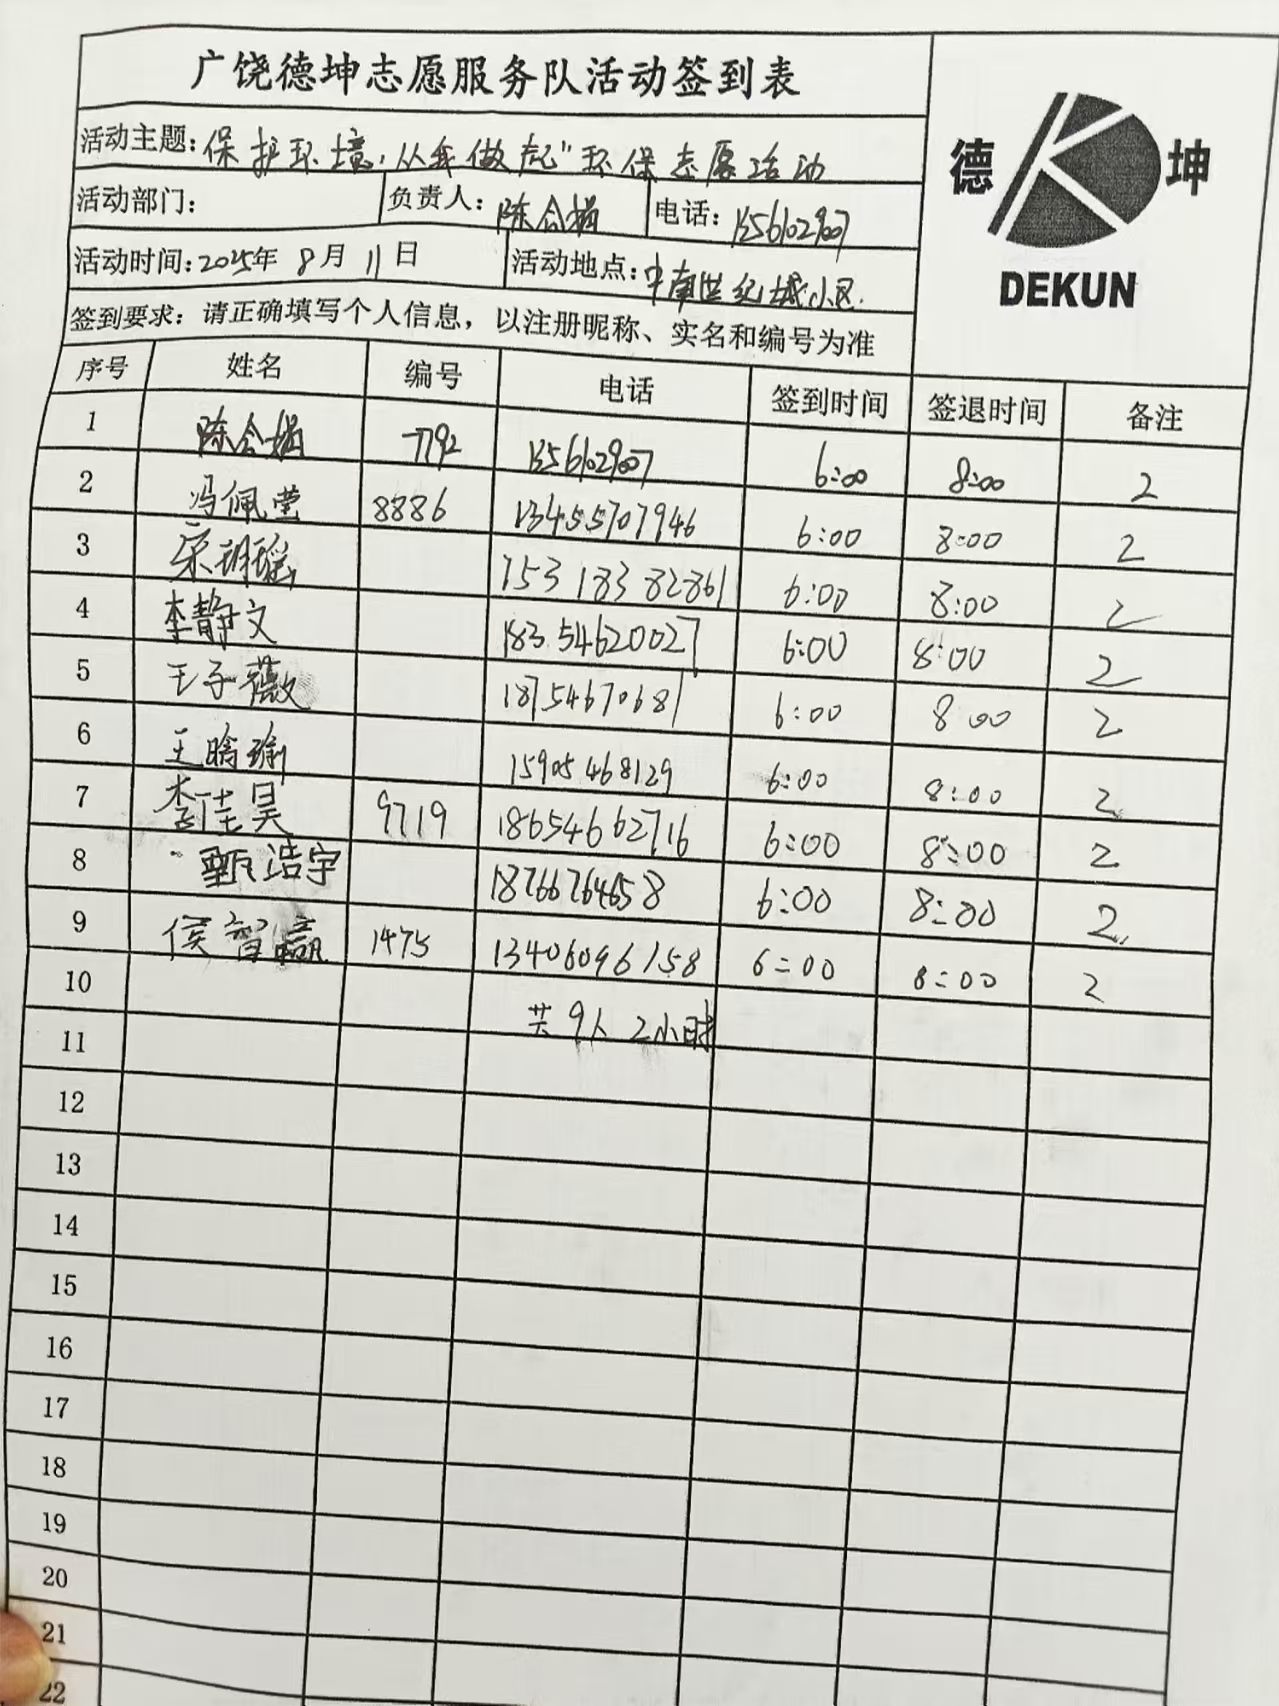 广饶德坤志愿服务队活动签到表
德 坤
DEKUN
活动主题: 保护环境,从我做起"环保志愿活动
活动部门: 负责人: 陈合梅 电话: 15561029007
活动时间: 2025年 8月 11日 活动地点: 中南世纪城小区.
签到要求: 请正确填写个人信息, 以注册昵称、实名和编号为准
序号 姓名 编号 电话 签到时间 签退时间 备注
1 陈合梅 7792 6:00 8:00 2
2 冯佩莹 8886 13455707946 6:00 8:00 2
3 15318382861 6:00 8:00 2
4 李静文 18354620027 6:00 8:00 2
5 王子薇 18754670681 6:00 8 00 2
6 王晗瑜 15905468129 6:00 8:00 2
7 李佳昊 9719 18654662716 6:00 8:00 2
8 甄浩宇 18766764658 6:00 8:00 2
9 侯智赢 1475 13406096158 6:00 8:00 2
10 共9人 2小时
11
12
13
14
15
16
17
18
19
20
21
22